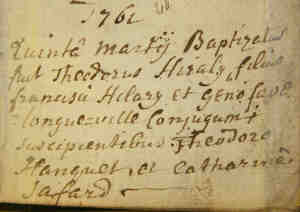 1761
Quintâ martij Baptizatus
fuit Theodorus Hilaly, filius
francisci Hilary et Genofavæ
Longueville Conjugum;
suscipientibus Theodoro
Hanquet, et Catharinâ
Jafard